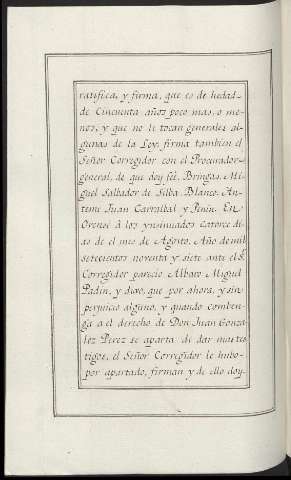 ratifica, y firma, que es de hedad-
de Cincuenta años poco mas, o me-
nos, y que no le tocan generales al-
gunas de la Ley, firma tambien el
Señor Corregidor con el Procurador-
general, de que doy feé. Bringas. Mi-
guel Salbador de Silba. Blanco. An-
temi Juan Carralbal y Penin. En
Orense à los ynsinuados Catorce di-
as de el mes de Agosto. Año de mil
setecientos noventa y siete ante el S.r
Corregidor parecio Albaro Miguel
Padin, y dixo, que por ahora, y sin
perjuicio alguno, y quando comben-
ga a el derecho de Don Juan Gonza-
lez Perez se aparta de dar mas tes
tigos, el Señor Corregidor le hubo-
por apartado, firman y de ello doy-